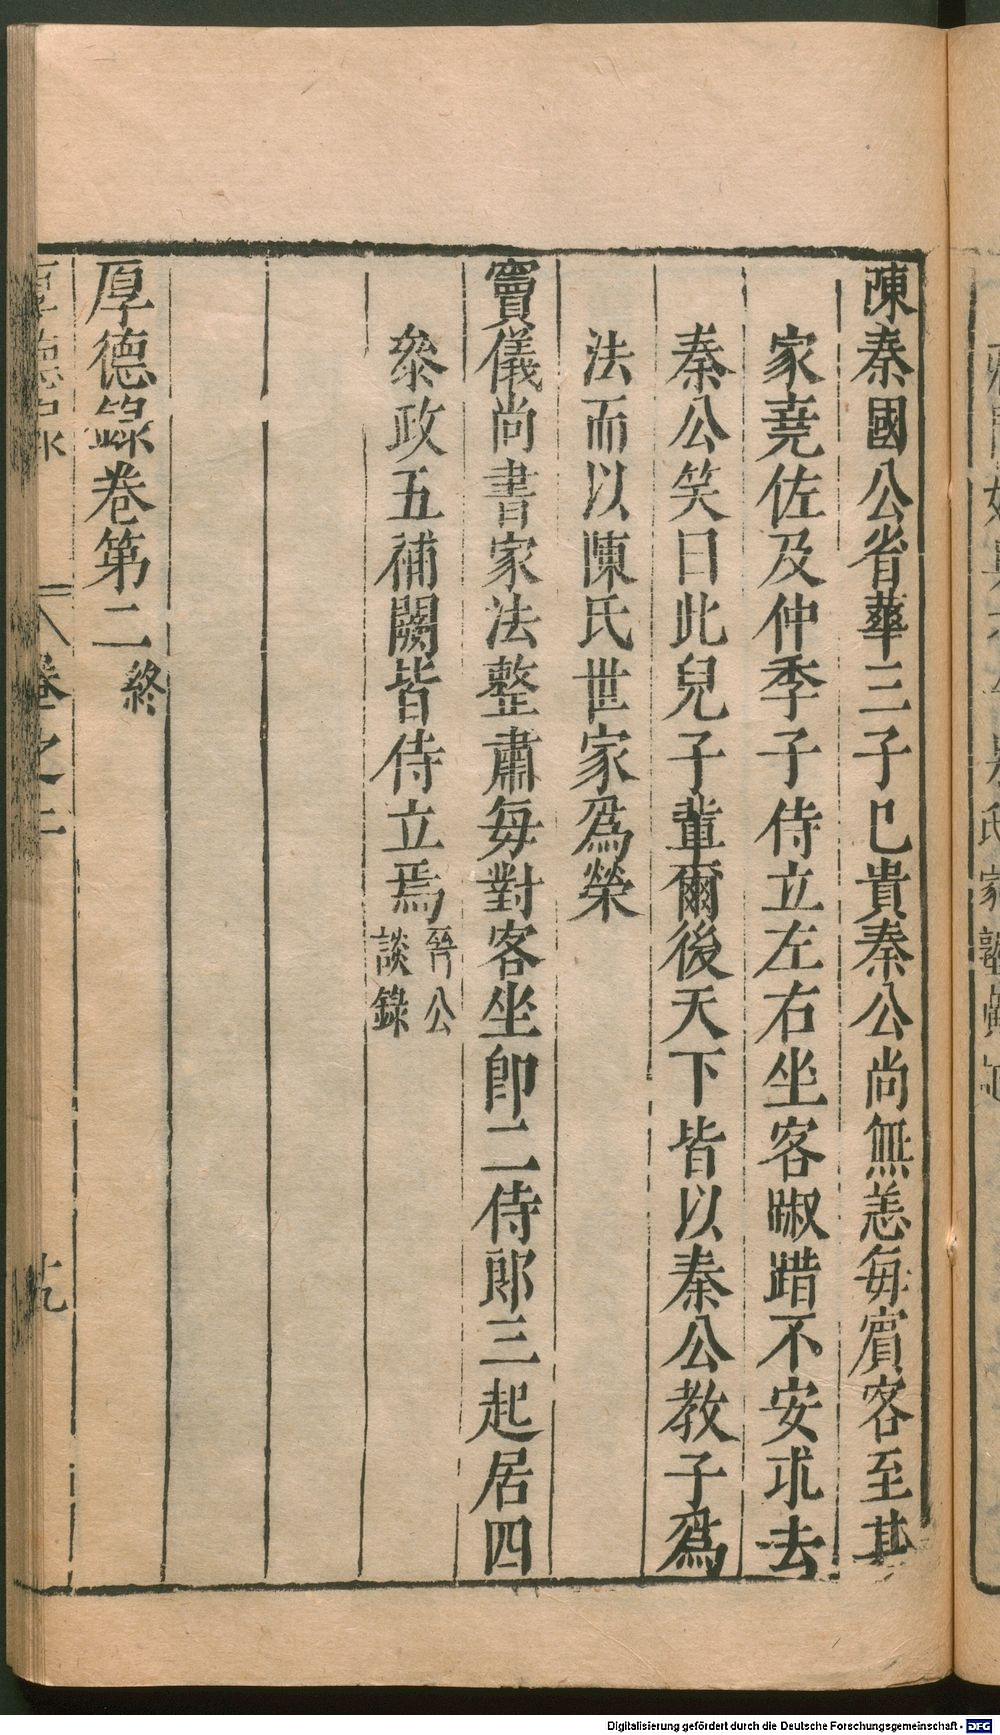 陳秦國公省華三子已貴秦公尚無恙每賔客至其
家堯佐及仲季子侍立左右坐客踧踖不安求去
秦公笑曰此兒子輩爾後天下皆以秦公教子爲
法而以陳氏世家爲榮
竇儀尚書家法整肅每對客坐即二侍郎三起居四
叅政五補闕皆侍立焉
晉公
談錄
厚德錄卷第二終
厚德錄
卷之二
Digitalisierung gefördert durch die Deutsche Forschungsgemeinschaft - DFG